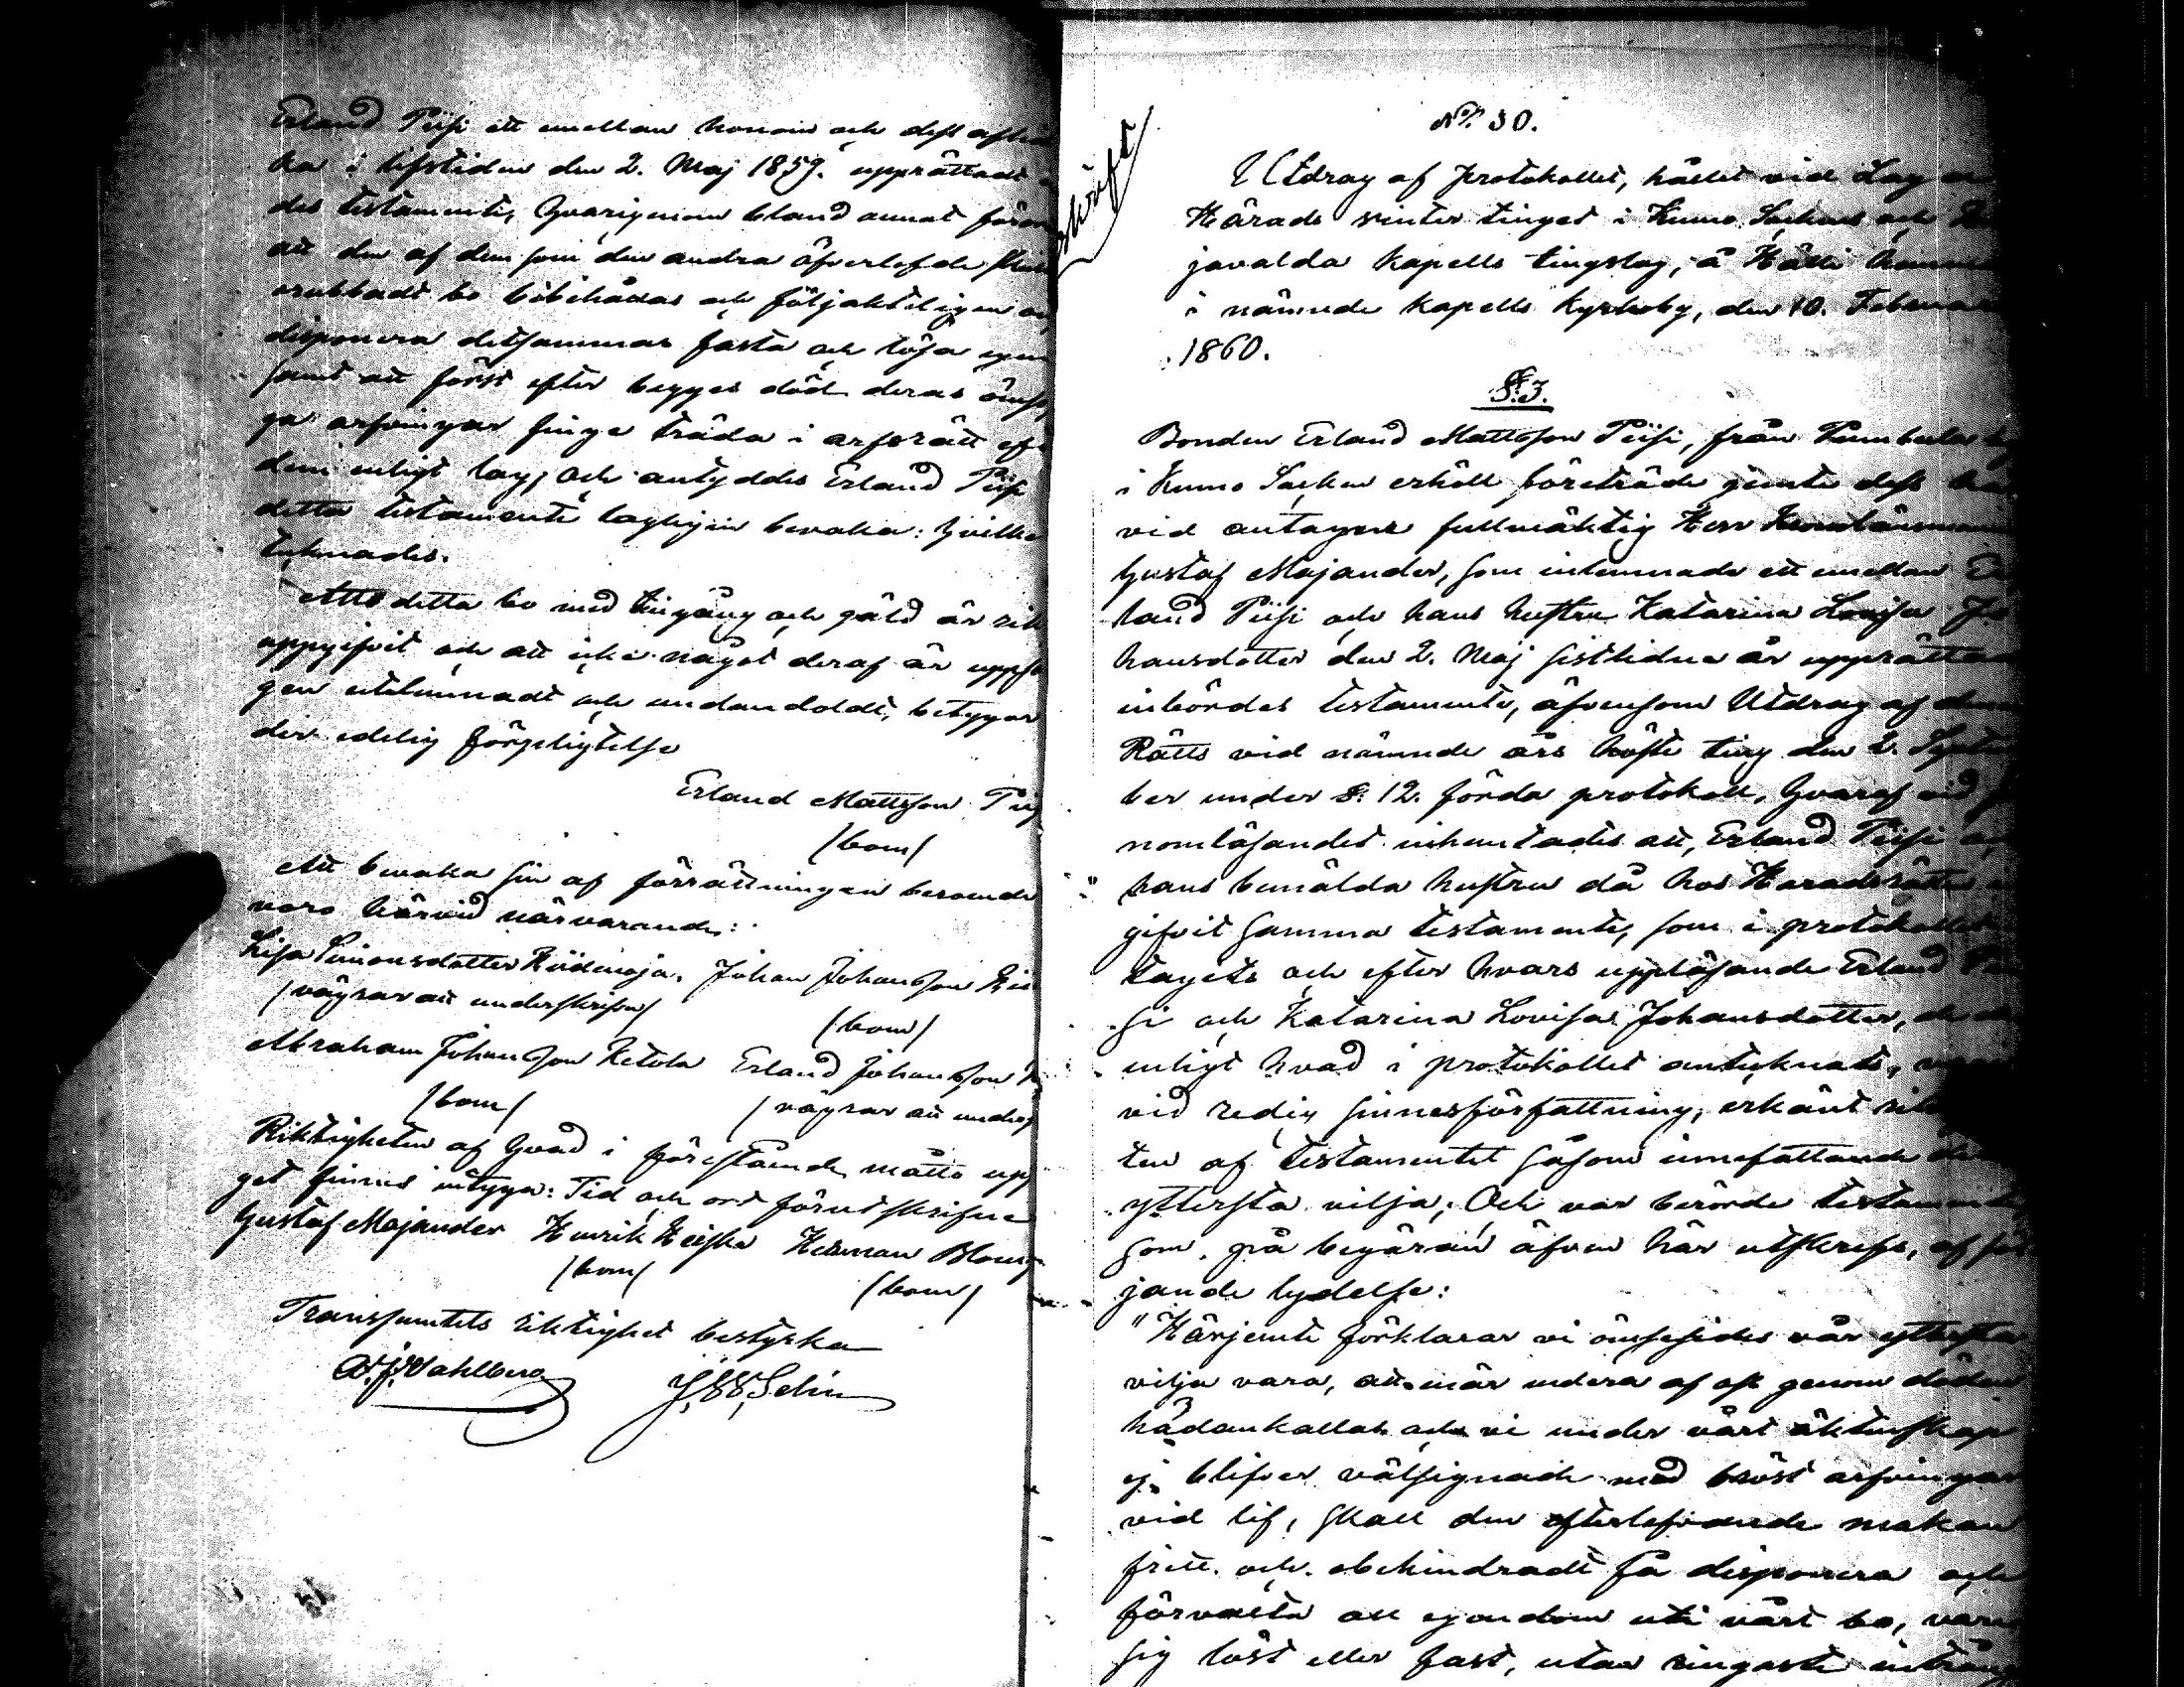 Erland Piisi ett emellan honom och dess aflid
na i lifstiden den 2. Maj 1859. upprättadt
des testamente, hvarigenom bland annat föror
att den af dem som den andra öfverlefde skul
orubbadt bo bibehållas och följaktligen
disponera detsammas fasta och lösa egen
samt att först efter begges död deras ömse
ga arfvingar finge träda i arfsrätt eft
dem enligt lag; och antyddes Erland Piisi
detta testamente lagligen bevaka: hvilket
tecknades.
Att detta bo med tilgång och gäld är rik
uppgifvit och att icke något deraf är uppså
gen utelemnadt och undandoldt, betygar
der edelig förpligtelse
Erland Mattsson Piisi
/bom/
Att bevaka sin af förrättningen beroende
voro härvid närvarande:
Lisa Simonsdotter Riidinoja. Johan Johansson
/vägrar att underskrifva/
/bom/
Abraham Johansson Ketola Erland Johansson
/bom/ /vägrar att unders
Riktigheten af hvad i förestående måtto upp
get finnes intyga: Tid och ort förutskrifne
Gustaf Majander Henrik Heiska Herman Blom
/bom/ /bom/
Transsumtets riktighet bestyrka
A. J. Wahlberg J. W. Selin
skrift
No 30.
Utdrag af Protokollet, hållet vid Lag
Härads vinter tinget i Kumo Socken och
javalda kapells tingslag, å Hätti hemman
i nämnde kapells Kyrkoby, den 10. Februari
1860.
§. 3.
Bonden Erland Mattsson Piisi, från
i Kumo Socken erhöll företräde jemte dess
vid antagne fullmäktig Herr Kronolänsman
Gustaf Majander, som inlemnade ett emellan Er
land Piisi och hans hustru Katarina Lovisa Jo
hansdotter den 2. Maj sistlidna år upprättad
inbördes testamente, äfvensom Utdrag af denna
Rätts vid nämnde års höste ting den 2. Septem
ber under §. 12. förda protokoll, hvaraf vid ge
nomläsandet inhemtades att, Erland Piisi
hans bemälda hustru då hos Häradsrätten
gifvit samma testamente, som i protokollet
tagits och efter hvars uppläsande Erland Pii
si och Katarina Lovisa Johansdotter, de
enligt hvad i protokollet antecknats,
vid redig sinnesförfattning, erkänt rik
ten af testamentet såsom innefattande de
yttersta vilja; Och var berörde testamente
som, på begäran äfven här utskrefs, af föl
jande lydelse:
"Härjemte förklarar vi ömsesides vår yttersta
vilja vara, att när endera af oss genom döden
hädankallats och vi under vårt äktenskap
ej blifver välsignade med bröst arfvingar
vid lif, skall den efterlefvande makan
fritt och obehindradt få disponera och
förvalta all egendom uti vårt bo, vare
sig löst eller fast, utan ringaste intrång